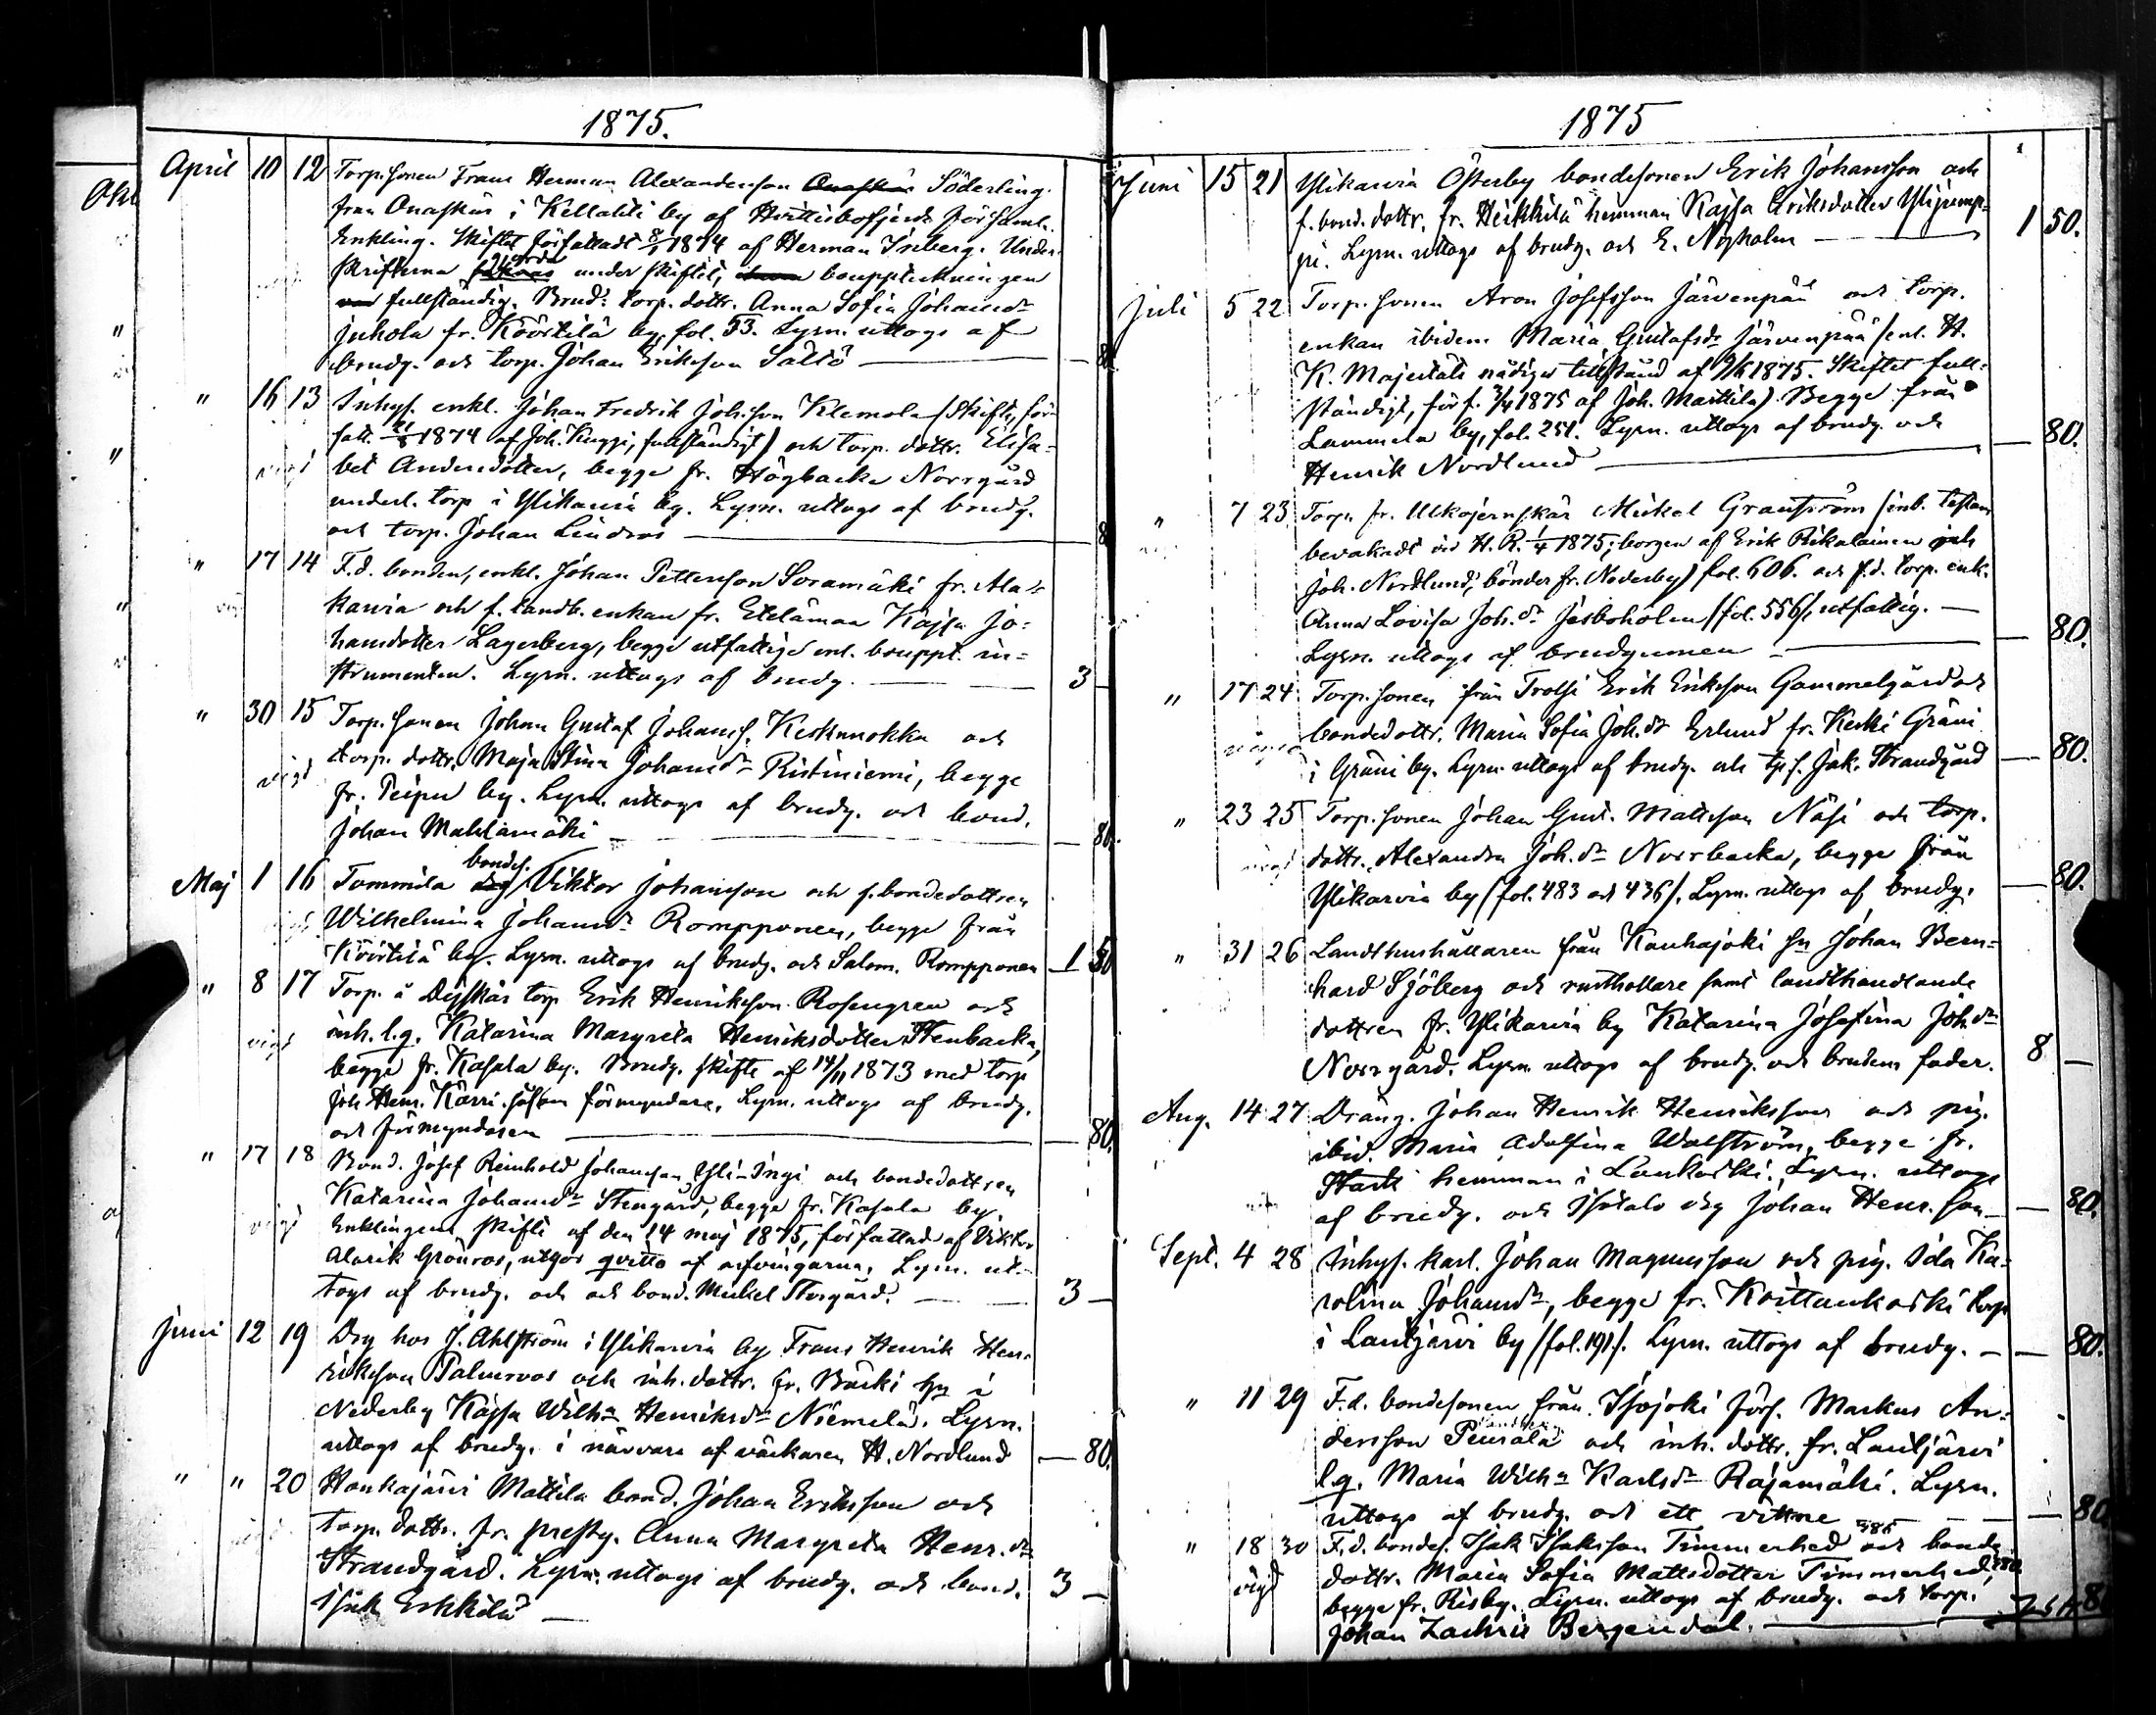 1875.
April 10 12 Torp. sonen Frans Herman Alexandersson Söderling
från Onaskär i Kellahti by af Hvittisbofjerds församl.
Enkling. Skiftet författadt 8/1 1874 af Herman Inberg. Under-
skrifterna under skiftet, bouppteckningen
fullständig. Brud: torp. dottr. Anna Sofia Johansdr
Juhola fr. Köörtilä by, fol. 33. Lysn. uttogs af
brudg. och torp. Johan Eriksson Sältö — 80
" 16 13 Inhys. enkl. Johan Fredrik Joh.son Klemola (Skifte, för-
fatt. 1874 af Joh. Kuggi, fullständigt) och torp. dottr. Elisa-
vigd bet Andersdotter, begge fr. Högbacka Norrgård
underl. torp i Ylikarvia by. Lysn. uttogs af brudg.
och torp. Johan Lindros — 8
" 17 14 F. d. bonden, enkl. Johan Pettersson Soramäki fr. Ala-
vigd karvia och f. landb. enkan fr. Etelämaa Kajsa Jo-
hansdotter Lagerberg, begge utfattige enl. bouppt. in-
strumenten. Lysn. uttogs af brudg. — 3 —
" 30 15 Torp. sonen Johan Gustaf Johanss. Keskunokka och
torp. dottr. Maja Stina Johansdr Ristiniemi, begge
vigd fr. Peipu by. Lysn. uttogs af brudg. och bond.
Johan Mahlamäki — 80.
bondes.
Maj 1 16 Tommila Viktor Johansson och f. bondedottren
vigd Wilhelmina Johansdr Rompponen, begge från
Köörtilä by. Lysn. uttogs af brudg. och Salom. Rompponen 1 50
" 8 17 Torp. å Dejskär torp Erik Henriksson Rosengren och
vigd inh. l.q. Katarina Margreta Henriksdotter Stenbacka,
begge fr. Kasala by. Brudg. skifte af 14/11 1873 med torp
Joh. Henr. Kärri såsom förmyndare, Lysn. uttogs af brudg.
och förmyndaren — 80.
" 17 18 Bond. Josef Reinhold Johansson Yli-Ingi och bondedottren
Katarina Johansdr Stengård, begge fr. Kasala by.
vigd Enklingens skifte af den 14 maj 1875, författad af Viktor
Alarik Grönroos, utgör qvitto af arfvingarna. Lysn. ut-
togs af brudg. och och bond. Mickel Storgård. — 3 —
Juni 12 19 Drg hos J. Ahlström i Ylikarvia by Frans Henrik Hen-
riksson Palmroos och inh. dottr. fr. Bäcki hn i
Nederby Kajsa Wilhna Henriksdr Niemelä. Lysn.
uttogs af brudg. i närvaro af väckaren H. Nordlund — 80.
" " 20 Honkajärvi Mattila bond. Johan Eriksson och
vigd torp. dottr. fr. prestg. Anna Margreta Henr. dr
Strandgård. Lysn. uttogs af brudg. och bond. 3 —
Isak Erkkilä —
1875
Juni 15 21 Ylikarvia Österby bondesonen Erik Johansson och
f. bond. dottr. fr. Heikkilä hemman Kajsa Eriksdotter Ylijemp-
pi. Lysn. uttogs af brudg. och E. Nyholm — 1 50.
Juli 5 22 Torp. sonen Aron Josefsson Järvenpää och torp.
enkan ibidem Maria Gustafsdr Järvenpää (enl. H.
K. Majestäts nådiga tillstånd af 9/6 1875. Skiftet full-
ständigt, förf. 3/4 1875 af Joh. Marttila). Begge från
Lammela by, fol. 251. Lysn. uttogs af brudg. och — 80.
Henrik Nordlund —
" 7 23 Torp. fr. Ulkojernskär Mickel Granström (inb. testam.
bevakadt vid H. R. 1/4 1875; borgen af Erik Rikalainen och
Joh. Nordlund, bönder fr. Nederby) fol. 606. och f.d. torp. enk.
Anna Lovisa Joh. dr Jasboholm (fol. 556), utfattig. —
Lysn. uttogs af brudgummen — 80.
" 17 24 Torp. sonen från Trolsi Erik Eriksson Gammelgård och
bondedottr. Maria Sofia Joh. dr Erlund fr. Keski Gräni
i Gräni by. Lysn. uttogs af brudg. och tp.s. Jak. Strandgård — 80.
" 23 25 Torp. sonen Johan Gust. Mattsson Näsi och torp.
vigd dottr. Alexandra Joh. dr Norrbacka, begge från
Ylikarvia by (fol. 483 och 436). Lysn. uttogs af brudg. — 80.
" 31 26 Landthushållaren från Kauhajoki sn Johan Bern-
hard Sjöberg och rusthållare samt landthandlande
dottren fr. Ylikarvia by Katarina Josefina Joh. dr
Norrgård. Lysn. uttogs af brudg. och brudens fader. 8 —
Aug. 14 27 Dräng. Johan Henrik Henriksson och pig.
ibid. Maria Adolfina Walström, begge fr.
Starti hemman i Lankoski. Lysn. uttogs
af brudg. och Isotalo drg Johan Henr. son — 80.
Sept. 4 28 Inhys. karl. Johan Magnusson och pig. Ida Ka-
rolina Johansdr, begge fr. Koittankoski torp
i Lautjärvi by (fol. 191). Lysn. uttogs af brudg. — 80.
" 11 29 F.d. bondesonen från Isojoki förs. Markus An-
dersson Peurala och inh. dottr. fr. Lautjärvi
l.q. Maria Wilhna Karlsdr Rajamäki. Lysn.
uttogs af brudg. och ett vittne — 80
" 18 30 F.d. bondes. Isak Isaksson Timmerhed och bonde
vigd dottr. Maria Sofia Mattsdotter Timmerhed,
begge fr. Risby. Lysn. uttogs af brudg. och torp.
Johan Zachris Bergendal. —